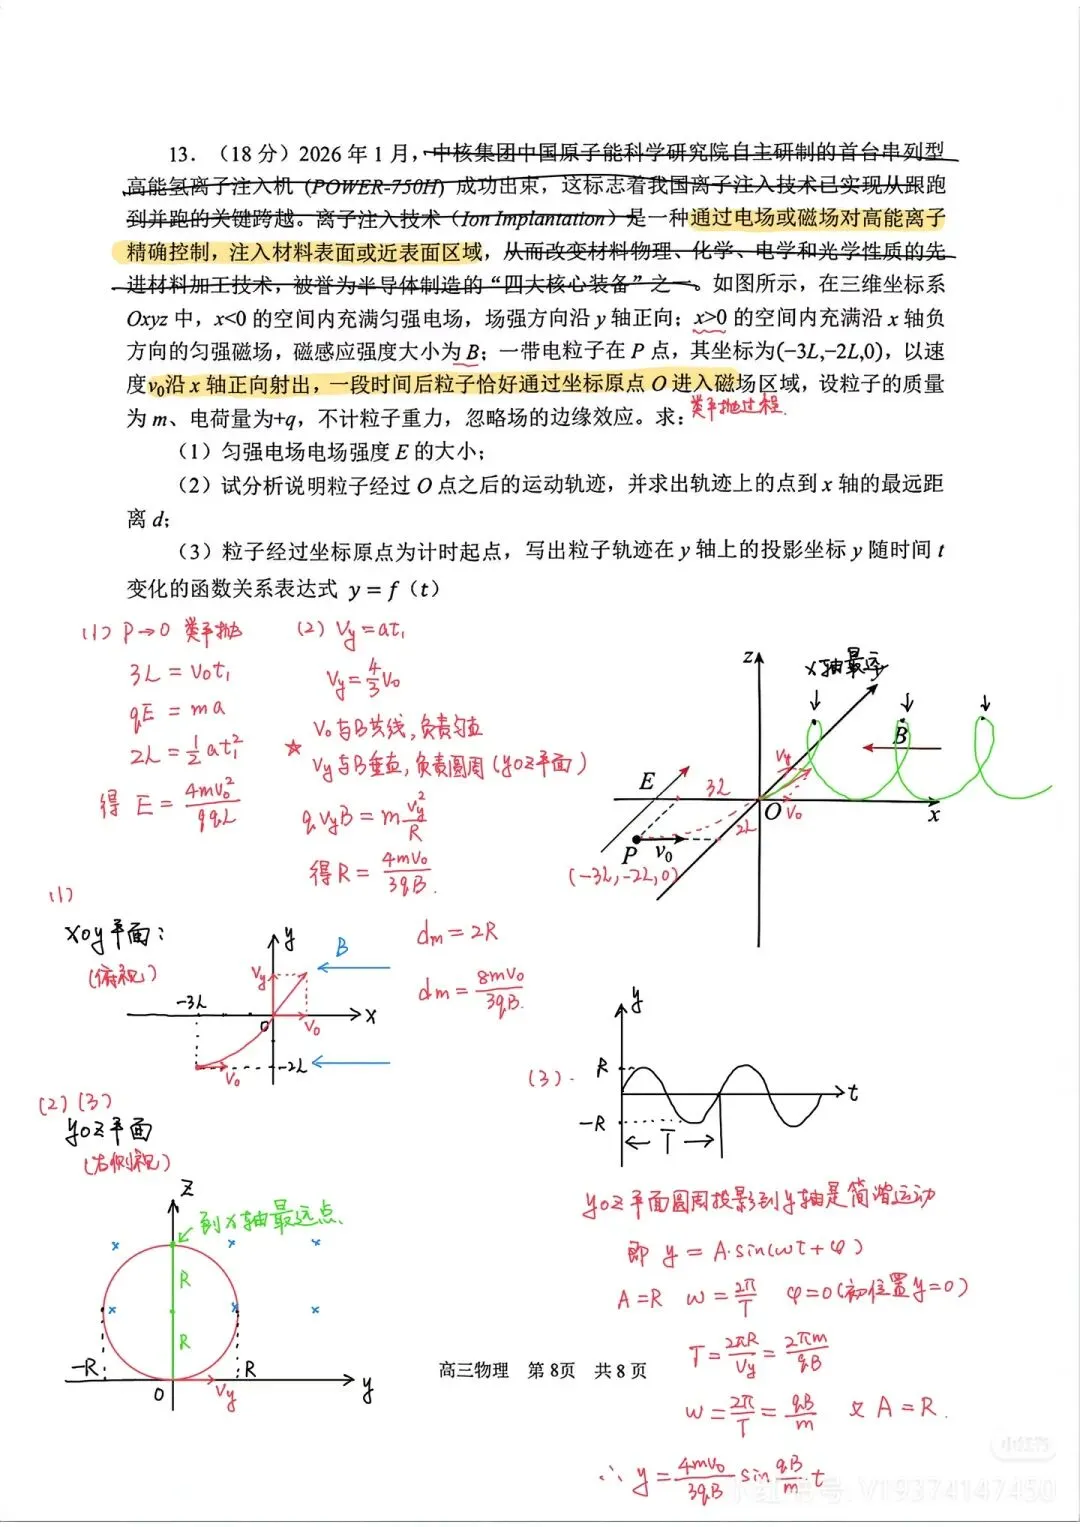 13.（18分）2026年1月，中核集团中国原子能科学研究院自主研制的首台串列型
高能氢离子注入机 (POWER-750H) 成功出束，这标志着我国离子注入技术已实现从跟跑
到并跑的关键跨越。离子注入技术（Ion Implantation）是一种通过电场或磁场对高能离子
精确控制，注入材料表面或近表面区域，从而改变材料物理、化学、电学和光学性质的先
进材料加工技术，被誉为半导体制造的“四大核心装备”之一。如图所示，在三维坐标系
Oxyz 中，x<0 的空间内充满匀强电场，场强方向沿 y 轴正向；x>0 的空间内充满沿 x 轴负
方向的匀强磁场，磁感应强度大小为 B；一带电粒子在 P 点，其坐标为(−3L,−2L,0)，以速
度v₀沿 x 轴正向射出，一段时间后粒子恰好通过坐标原点 O 进入磁场区域，设粒子的质量
为 m、电荷量为+q，不计粒子重力，忽略场的边缘效应。求：
类平抛过程.
（1）匀强电场电场强度 E 的大小；
（2）试分析说明粒子经过 O 点之后的运动轨迹，并求出轨迹上的点到 x 轴的最远距
离 d；
（3）粒子经过坐标原点为计时起点，写出粒子轨迹在 y 轴上的投影坐标 y 随时间 t
变化的函数关系表达式 y = f（t）
(1) P→O 类平抛
3L = v₀t₁
qE = ma
2L = ½at₁²
得 E = 4mv₀²/9qL
(2) Vy = at₁
Vy = 4/3 v₀
V₀与B共线，负责匀直
★ Vy与B垂直，负责圆周(yoz平面)
qvyB = m vy²/R
得R = 4mv₀/3qB.
dm = 2R
dm = 8mv₀/3qB.
z
x轴最远
y
B
Vy
E
3L
O
V₀
x
2L
P
v₀
(-3L,-2L,0)
(1)
xoy平面：
(俯视)
y
B
Vy
-3L
O
V₀
x
V₀
-2L
(2)(3)
yoz平面
(右侧视)
z
到x轴最远点.
R
R
-R
O
Vy
R
y
(3).
y
R
-R
T
t
yoz平面圆周投影到y轴是简谐运动
即 y = A·sin(ωt+φ)
A=R ω = 2π/T φ=0(初位置y=0)
T = 2πR/Vy = 2πm/qB
ω = 2π/T = qB/m 又 A = R.
∴ y = 4mv₀/3qB sin qB/m t
高三物理 第 8页 共 8 页
小红书
小红书号:V19374147450